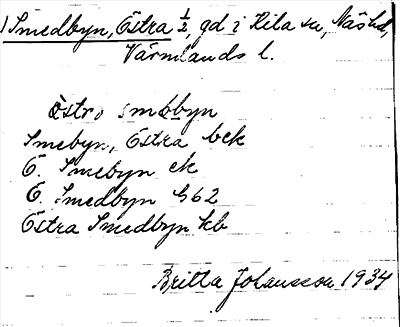 Smedbyn, Östra ½, gd i Kila sn, Näs hd,
Värmlands l.
östro smebyn
Smebyn, Östra bek
Ö. Smebyn ek
Ö. Smedbyn G62
Östra Smedbyn kb
Britta Johansson 1934